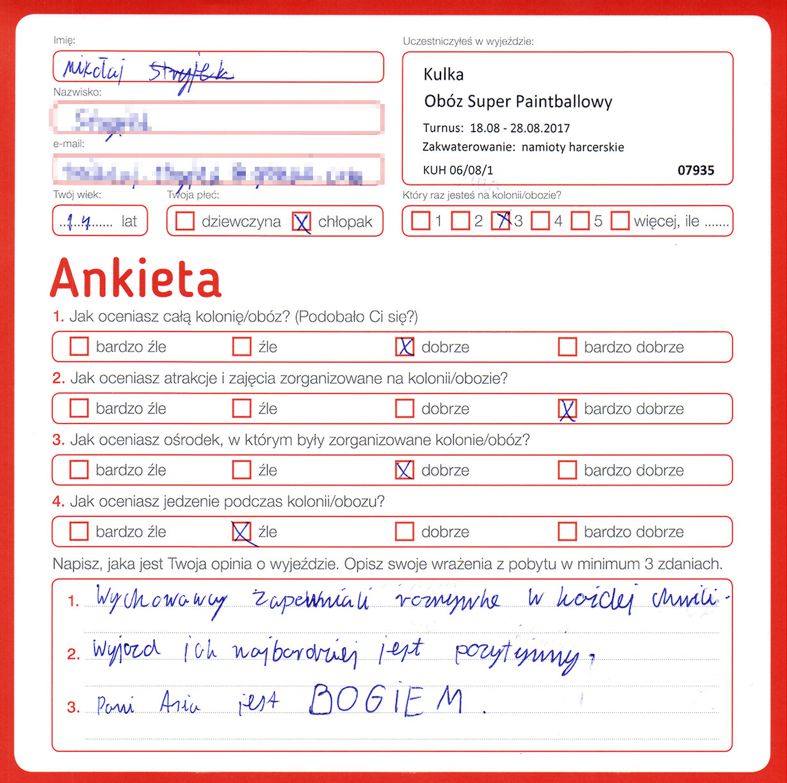 Imię:
Mikołaj
Nazwisko:
e-mail:
Twój wiek:
14 lat
Twoja płeć:
dziewczyna
chłopak
Uczestniczyłeś w wyjeździe:
Kulka
Obóz Super Paintballowy
Turnus: 18.08 - 28.08.2017
Zakwaterowanie: namioty harcerskie
KUH 06/08/1 07935
Który raz jesteś na kolonii/obozie?
1 2 3 4 5 więcej, ile .......
Ankieta
1. Jak oceniasz całą kolonię/obóz? (Podobało Ci się?)
bardzo źle źle dobrze bardzo dobrze
2. Jak oceniasz atrakcje i zajęcia zorganizowane na kolonii/obozie?
bardzo źle źle dobrze bardzo dobrze
3. Jak oceniasz ośrodek, w którym były zorganizowane kolonie/obóz?
bardzo źle źle dobrze bardzo dobrze
4. Jak oceniasz jedzenie podczas kolonii/obozu?
bardzo źle źle dobrze bardzo dobrze
Napisz, jaka jest Twoja opinia o wyjeździe. Opisz swoje wrażenia z pobytu w minimum 3 zdaniach.
1. Wychowawcy zapewniali rozrywkę w każdej chwili.
2. Wyjazd jak najbardziej jest pozytywny,
3. Pani Asia jest BOGIEM.